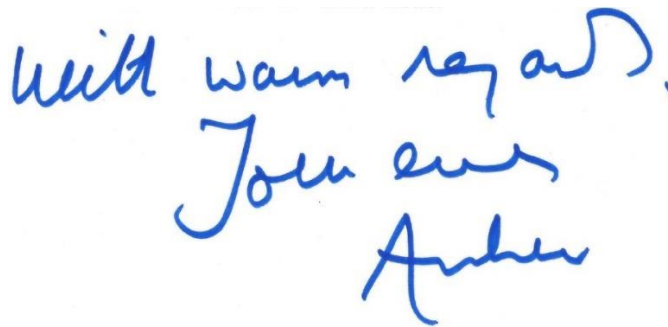 With warm regards.
Yours ever
Andrew